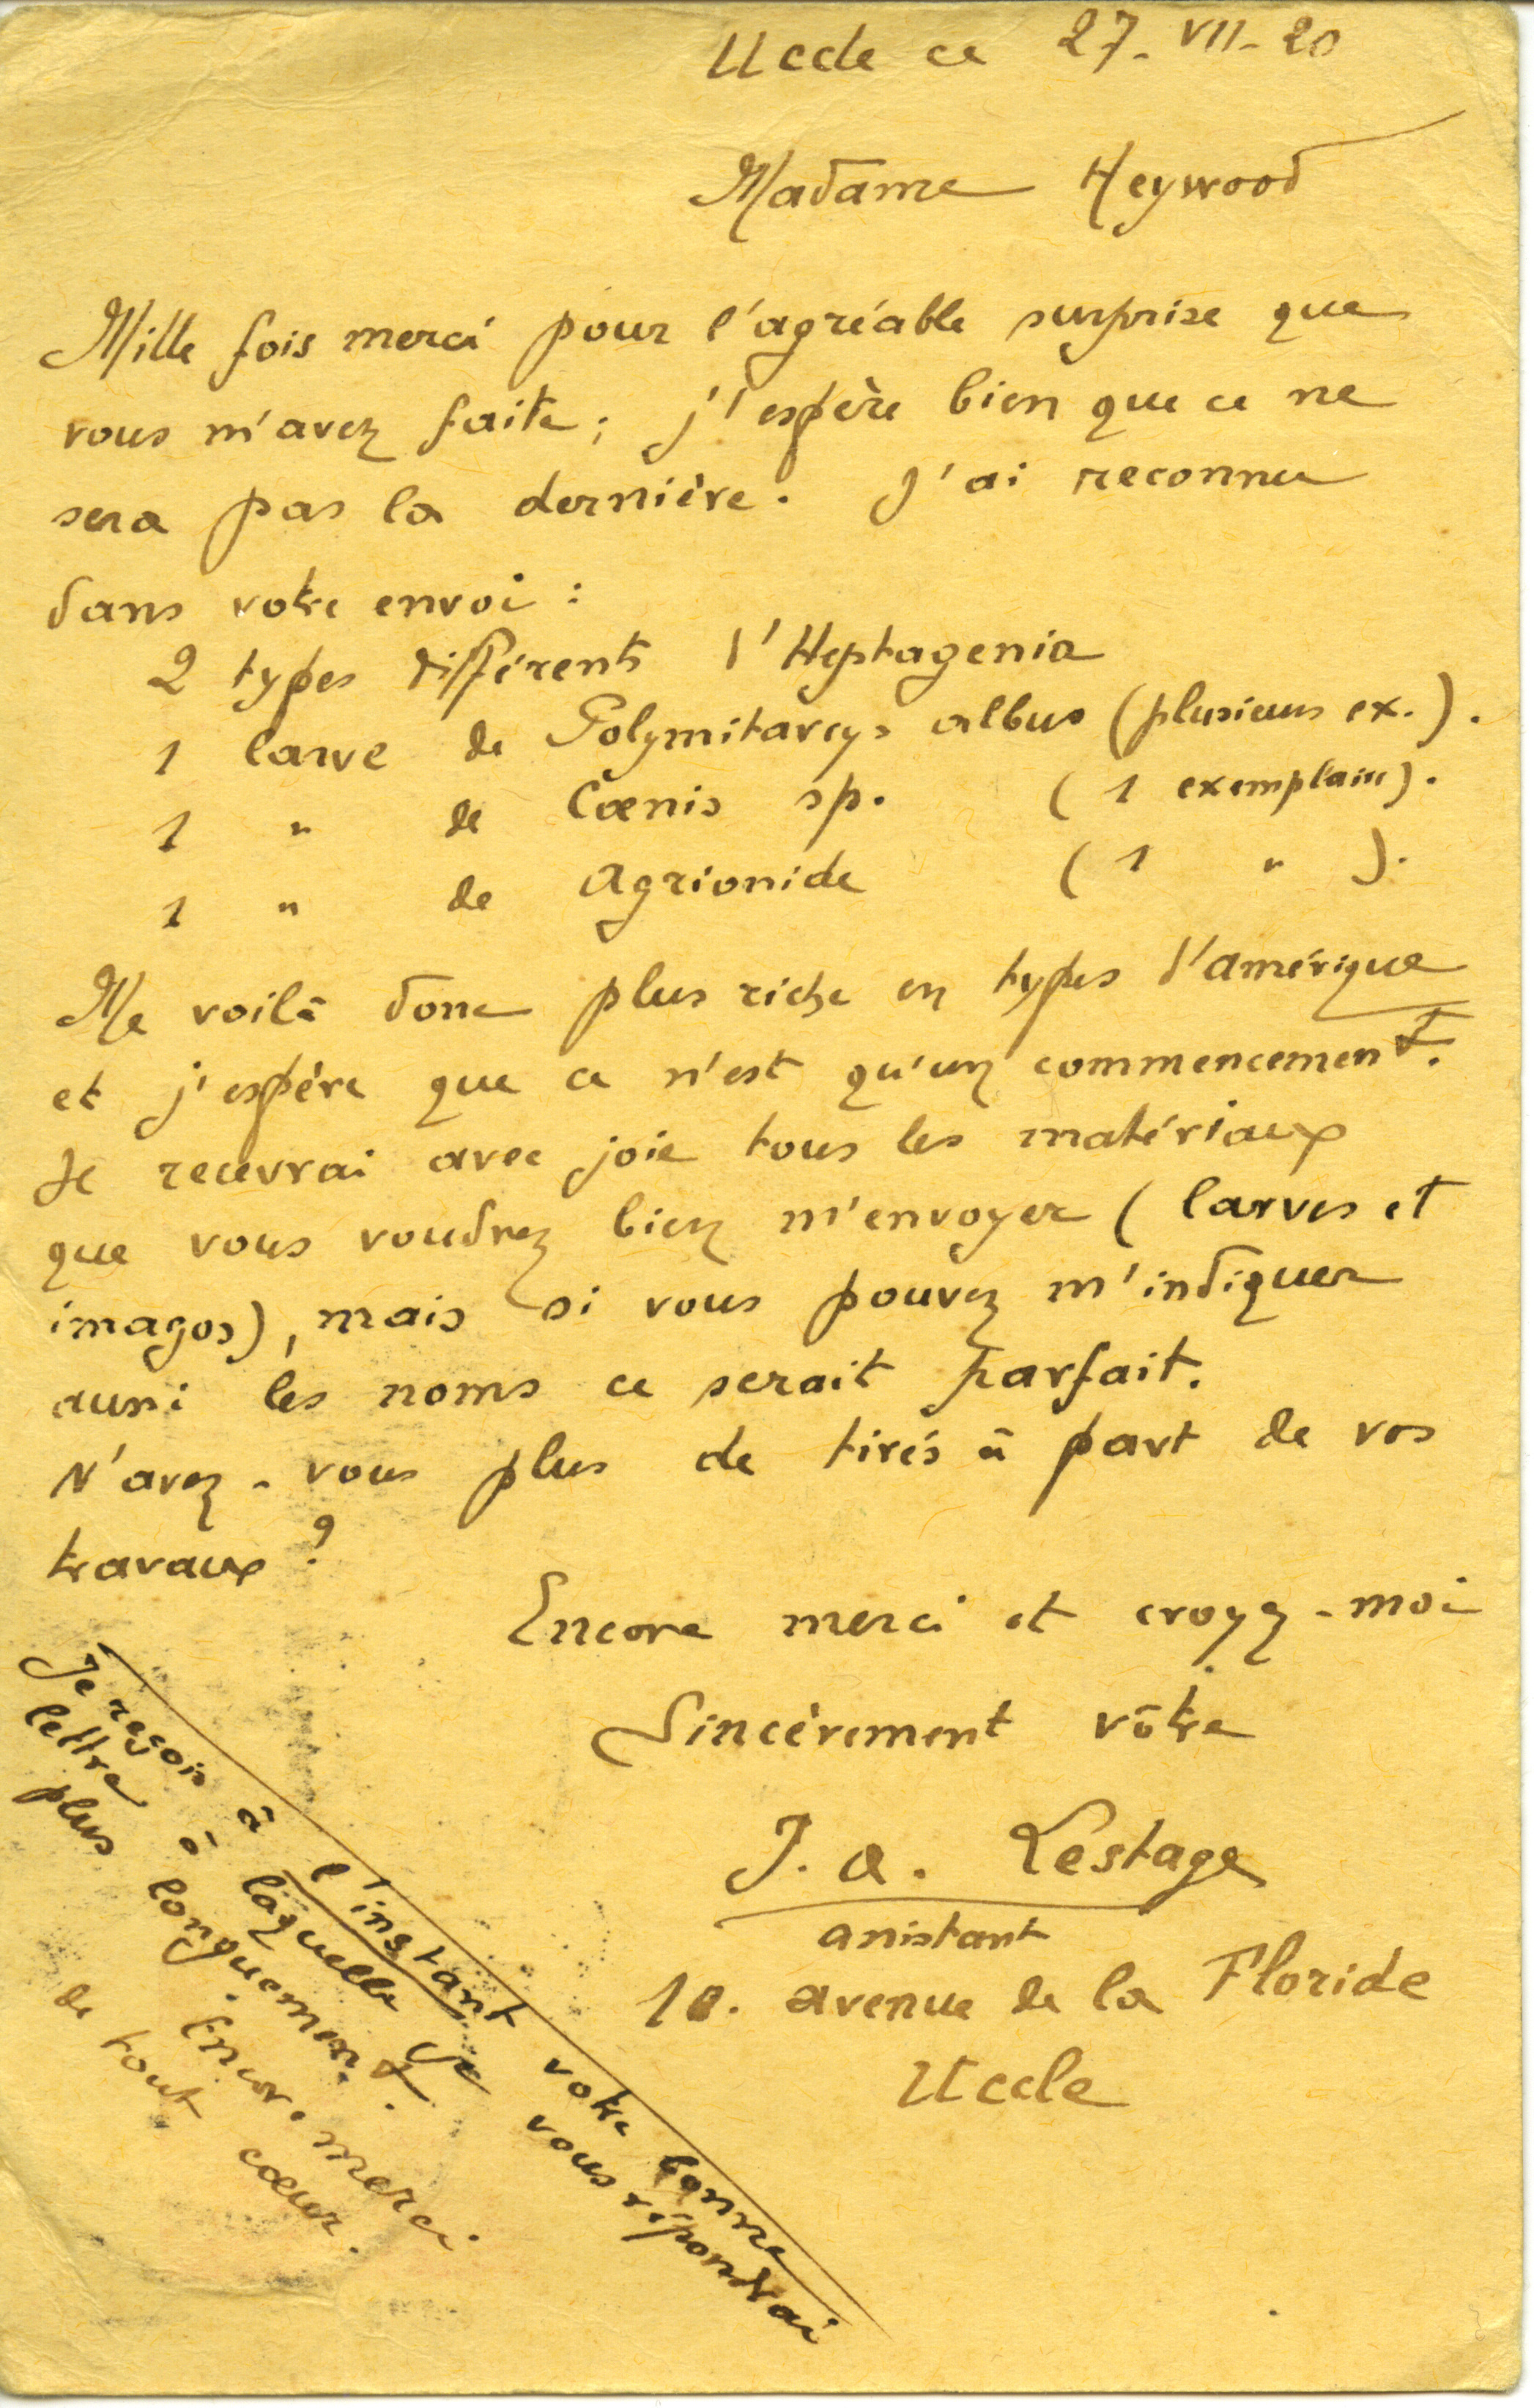 Uccle ce 27-VII-20
Madame Heywood
Mille fois merci pour l'agréable surprise que
vous m'avez faite; j'espère bien que ce ne
sera pas la dernière. J'ai reconnu
dans votre envoi :
2 types différents d'Heptagenia
1 larve de Polymitarcys albus (plusieurs ex.).
1 " de Cœnis sp. (1 exemplaire).
1 " de Agrionide (1 " ).
Me voilà donc plus riche en types d'amérique
et j'espère que ce n'est qu'un commencement.
Je recevrai avec joie tous les matériaux
que vous voudrez bien m'envoyer (larves et
imagos), mais si vous pouvez m'indiquer
aussi les noms ce serait parfait.
N'avez-vous plus de tirés à part de vos
travaux ?
Encore merci et croyez-moi
Sincèrement vôtre
J. A. Lestage
assistant
10. avenue de la Floride
Uccle
Je reçois à l'instant votre bonne
lettre à laquelle je vous répondrai
plus longuement.
Encore merci
de tout cœur.